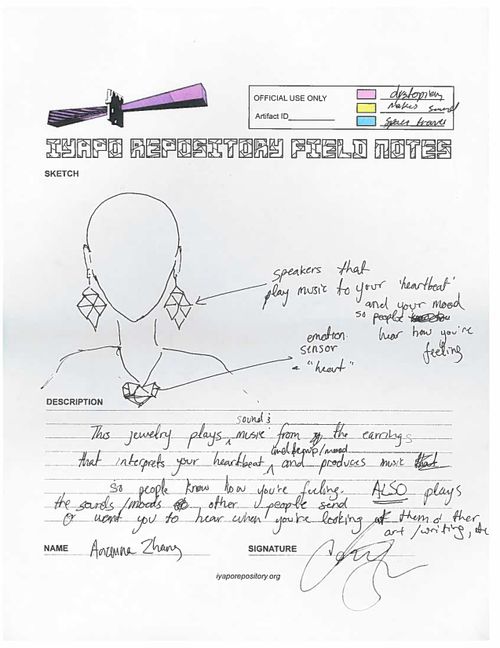 OFFICIAL USE ONLY
Artifact ID
dystopian
makes sound
space travel
IYAPO REPOSITORY FIELD NOTES
SKETCH
speakers that
play music to your 'heartbeat'
and your mood
so people
hear how you're
feeling
emotion
sensor
"heart"
DESCRIPTION
sounds
This jewelry plays music from the earrings
and mood
that interprets your heartbeat and produces music that
so people know how you're feeling. ALSO plays
the sounds/moods other people send
or want you to hear when you're looking at them or their
art/writing, etc
NAME
Zhang
SIGNATURE
iyaporepository.org